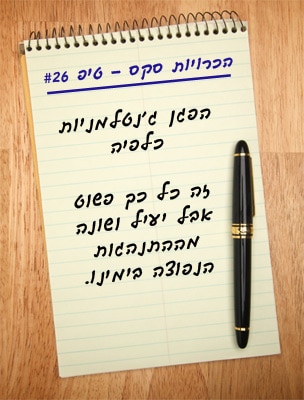 הכרויות סקס – טיפ #26
הפגן ג'נטלמניות
כלפיה
זה כל כך פשוט
אבל יעיל ושונה
מההתנהגות
הנפוצה בימינו.